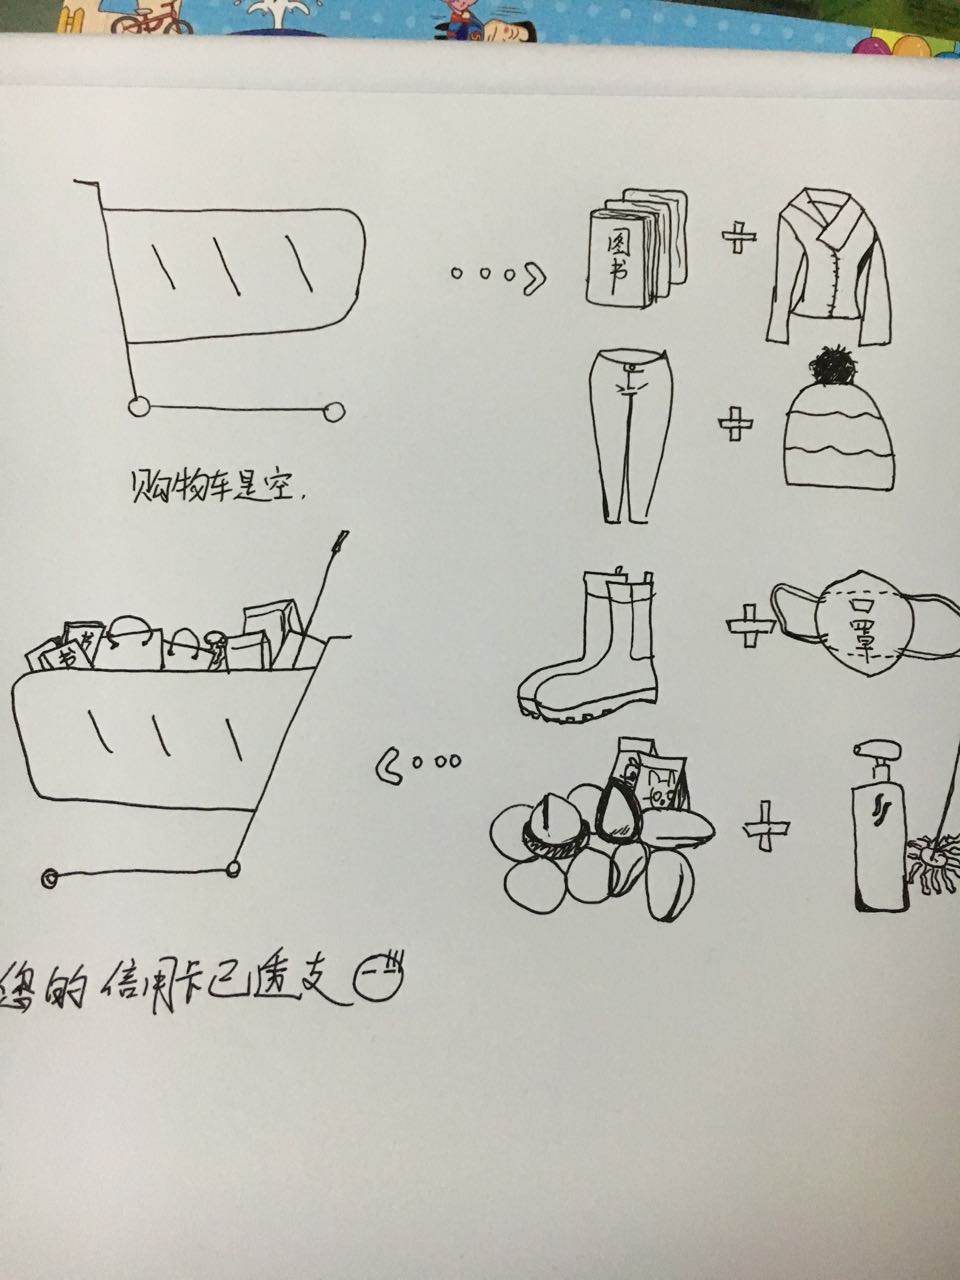 图
书
购物车是空.
书
书
口
罩
您的信用卡已透支